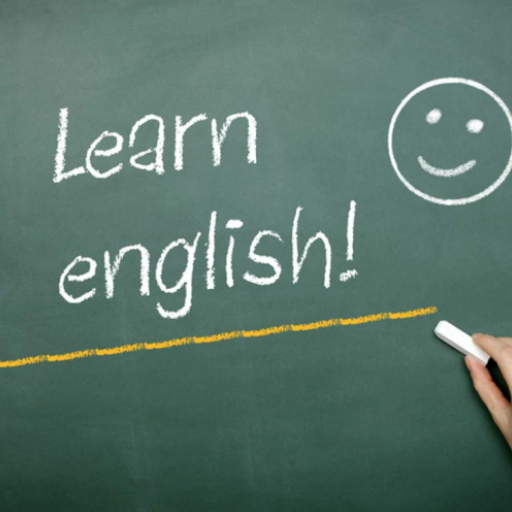 Learn
english!